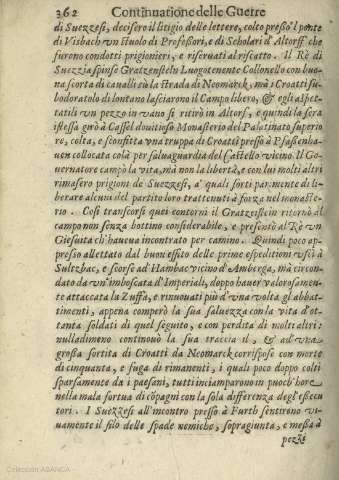 362 Continuatione delle Guerre
di Suezzesi, decisero il litigio delle lettere, colto presso'l ponte
di Visbach vn stuolo di Professori, e di Scholari d'Altorff che
furono condotti prigionieri, e riseruati al riscatto. Il Rè di
Suezzia spinse Gratzenstein Luogotenente Collonello con buo-
na scorta di caualli sù la strada di Neomarck, mà i Croati su-
bodoratulo di lontano lasciarono il Campo libero, & egli aspet-
tatili vn pezzo in vano si ritirò in Altorf, e quindi la sera
istessa girò à Cassol douitioso Monasterio del Palatinato superio
re, colta, e sconfitta vna truppa di Croati presso à Pfaffenha-
uen collocata colà per saluaguardia del Castello vicino. Il Go-
uernatore campò la vita, mà non la libertà, e con lui molti altri
rimasero prigioni de Suezzesi, a' quali sortì parimente di li-
berare alcuni del partito loro trattenuti à forza nel monaste-
rio. Così transcorsi quei contorni il Gratzestein ritornò al
campo non senza bottino considerabile, e presentò al Rè vn
Giesuita ch'haueua incontrato per camino. Quindi poco ap-
presso allettato dal buon essito delle prime espeditioni vscì à
Sultzbac, e scorse ad Hambac vicino d'Amberga, mà circon-
dato da vn'imboscata d'Imperiali, doppo hauer valorosamen-
te attaccata la Zuffa, e rinouati più d'vna volta gl'abbat-
timenti, appena comperò la sua saluezza con la vita d'ot-
tanta soldati di quel seguito, e con perdita di molti altri:
nulladimeno continouò la sua traccia il, & ad vna
grossa sortita di Croatti da Neomarck corrispose con morte
di cinquanta, e fuga di rimanenti, i quali poco doppo colti
sparsamente da i paesani, tutti inciamparono in puoch'hore
nella mala fortuna di cõpagni con la sola differenza degl'essecu
tori. I Suezzesi all'incontro presso à Furth sentirono vi-
uamente il filo delle spade nemiche, sopragiunta, e messa à
pezzi
Colección ABANCA